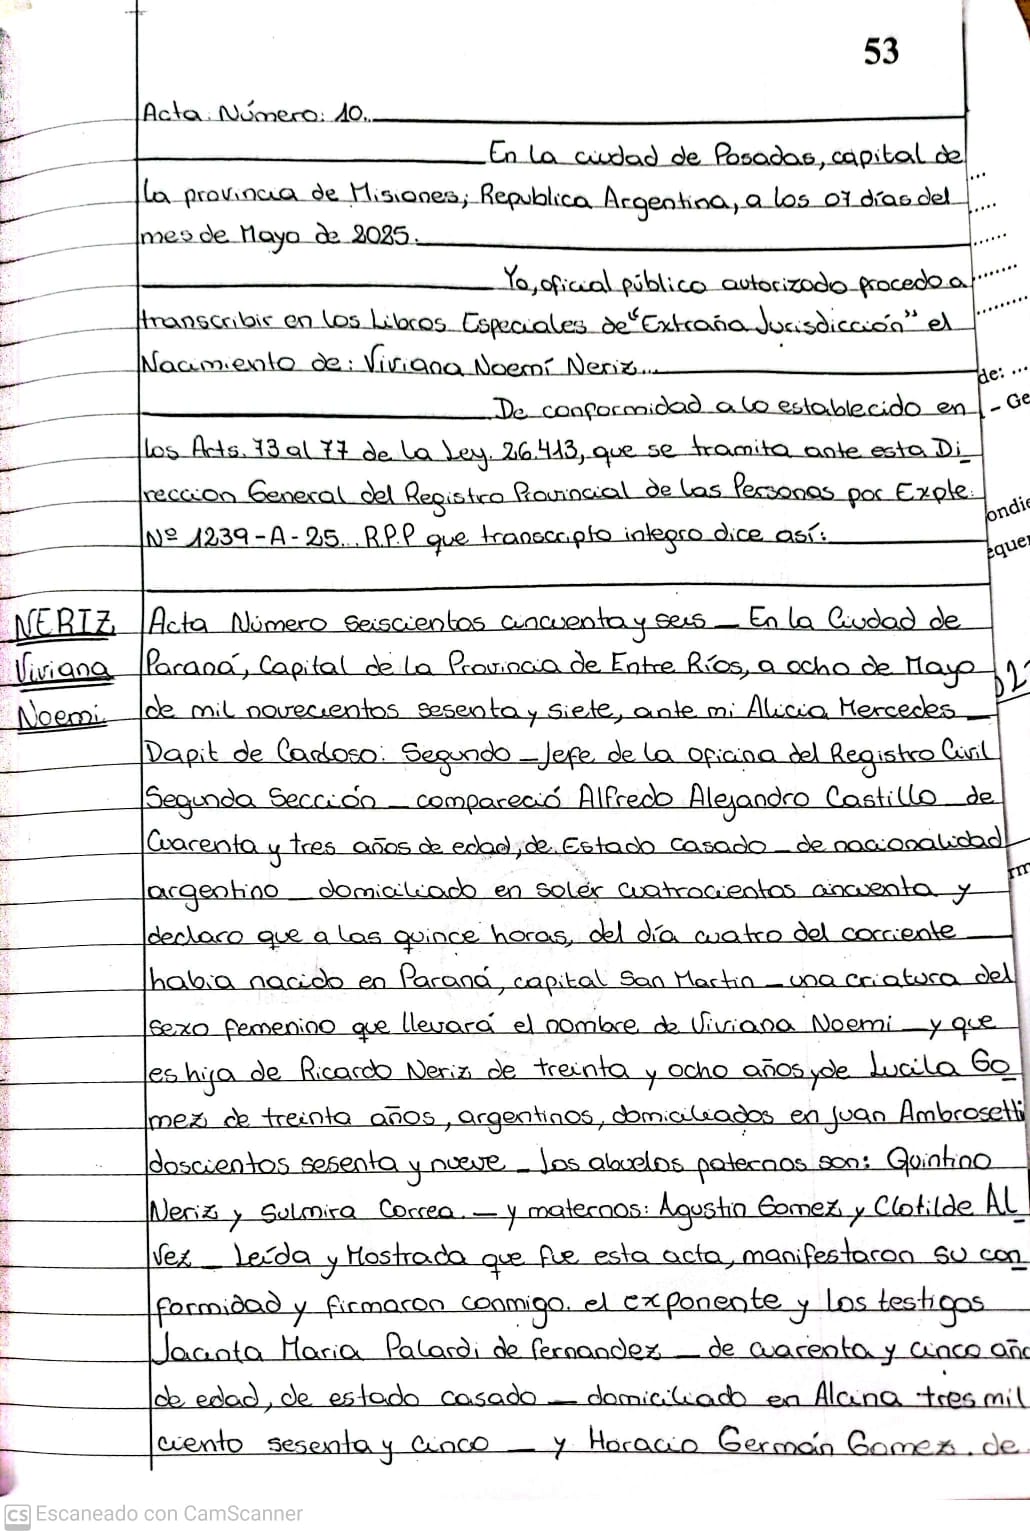 53
Acta. Número: 10.
En la ciudad de Posadas, capital de
la provincia de Misiones; Republica Argentina, a los 07 días del
mes de Mayo de 2025.
Yo, oficial público autorizado procedo a
transcribir en los Libros Especiales de "Extraña Jurisdicción" el
Nacimiento de: Viviana Noemí Neriz...
De conformidad a lo establecido en
los Arts. 73 al 77 de la Ley. 26.413, que se tramita ante esta Di_
reccion General del Registro Provincial de las Personas por Expte.
Nº 1239-A-25.. R.P.P que transcripto integro dice así:
NERIZ
Viviana
Noemi.
Acta Número seiscientos cincuenta y seis _ En la Ciudad de
Paraná, Capital de la Provincia de Entre Ríos, a ocho de Mayo
de mil novecientos sesenta y siete, ante mi Alicia Mercedes _
Dapit de Cardoso: Segundo _ Jefe de la oficina del Registro Civil
Segunda Sección _ compareció Alfredo Alejandro Castillo de
Cuarenta y tres años de edad, de Estado casado _ de nacionalidad
argentino _ domiciliado en soler cuatrocientos cincuenta y
declaro que a las quince horas, del día cuatro del corriente
habia nacido en Paraná, capital San Martin _ una criatura del
sexo femenino que llevará el nombre de Viviana Noemi _ y que
es hija de Ricardo Neriz de treinta y ocho años y de Lucila Go_
mez de treinta años, argentinos, domiciliados en Juan Ambrosetti
doscientos sesenta y nueve _ los abuelos paternos son: Quintino
Neriz y Sulmira Correa. _ y maternos: Agustin Gomez y Clotilde Al_
vez _ Leída y Mostrada que fue esta acta, manifestaron su con_
formidad y firmaron conmigo. el exponente y los testigos
Jacinta Maria Palardi de fernandez _ de cuarenta y cinco año
de edad, de estado casado _ domiciliado en Alcina tres mil
ciento sesenta y cinco _ y Horacio Germán Gomez. de
de: ...
- Ge
ondie
equer
CS Escaneado con CamScanner